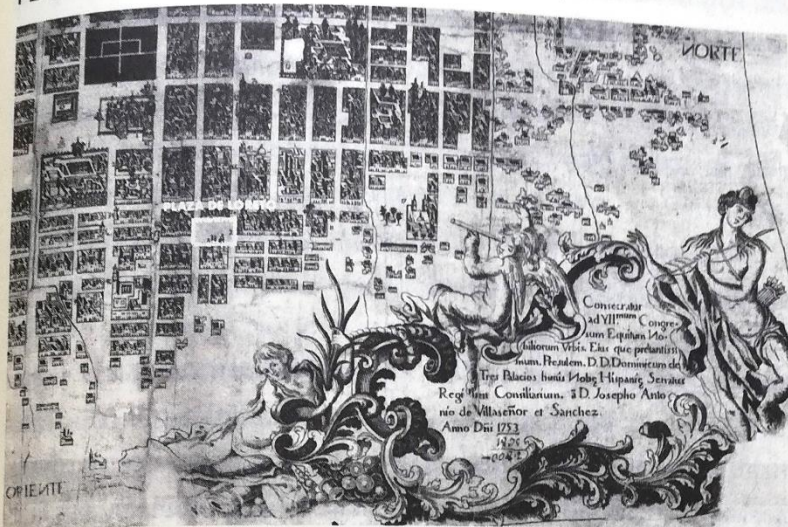 NORTE
PLAZA DE LORETO
Consecratur
ad VII mum Congre-
sum Equitum No-
biliorum Vrbis. Eius que prestantissi
mum. Presulem. D.D. Dominicum de
Tres Palacios huius Nobę Hispanię Senatus
Regi Comiliarium. à D. Josepho Anto
nio de Villaseñor et Sanchez.
Anno Dñi 1753
ORIENTE